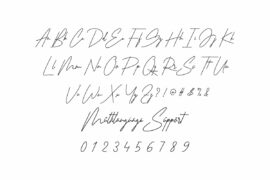 Aa Bb Cc Dd Ee Ff Gg Hh Ii Jj Kk
Ll Mm Nn Oo Pp Qq Rr Ss Tt Uu
Vv Ww Xx Yy Zz ? ! @ # & % &
Multilanguage Support
0 1 2 3 4 5 6 7 8 9